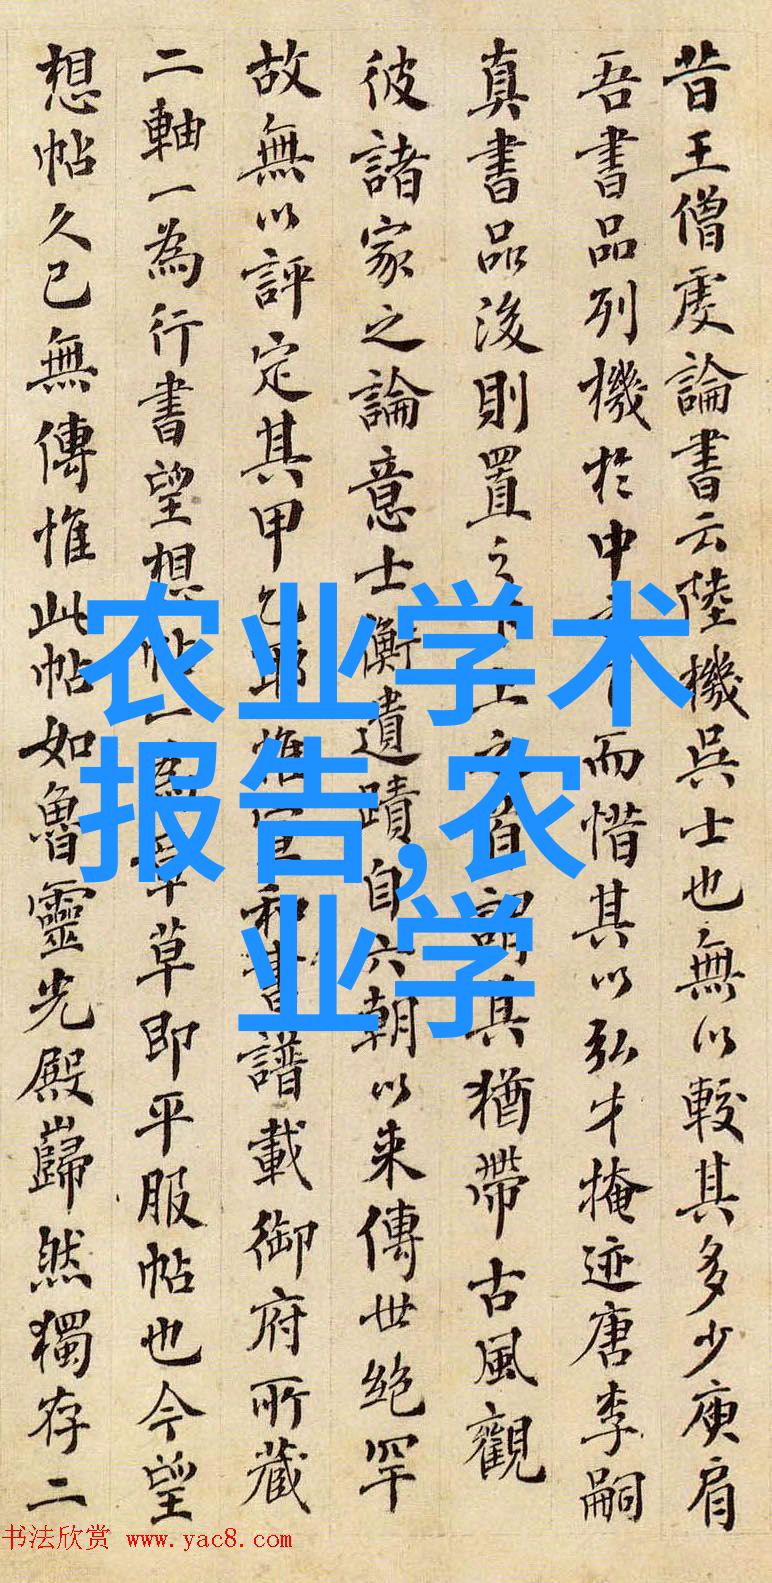 昔王僧虔論書云陸機吳士也無以較其多少庾肩
吾書品列機於中而惜其以弘才掩迹唐李嗣
真書品後則置之下上之首謂其猶帶古風觀
彼諸家之論意士衡遺蹟自六朝以来傳世絶罕
故無以評定其甲乙耶惟宣和書譜載御府所藏
二軸一為行書望想帖一為章草即平服帖也今望
想帖久已無傳惟此帖如魯靈光殿巋然獨存二
农业学术
报告,农
业学
书法欣赏 www.yac8.com